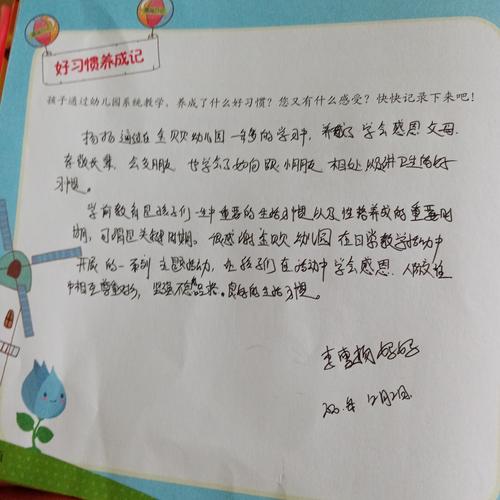 好习惯养成记
孩子通过幼儿园系统教学,养成了什么好习惯?您又有什么感受?快快记录下来吧!
扬扬通过在金贝贝幼儿园一年多的学习中,养成了学会感恩父母.
孝敬长辈,会交朋友,也学会了如何跟小朋友相处以及讲卫生的好
习惯。
学前教育是孩子们一生中重要的生活习惯以及性格养成的重要时
期,可谓是关键时期。很感谢金贝贝幼儿园在日常教学活动中
开展的一系列主题活动,让孩子们在活动中学会感恩,人际交往
中相互尊重,坚强不息,良好的生活习惯。
李 扬妈妈
年12月2日